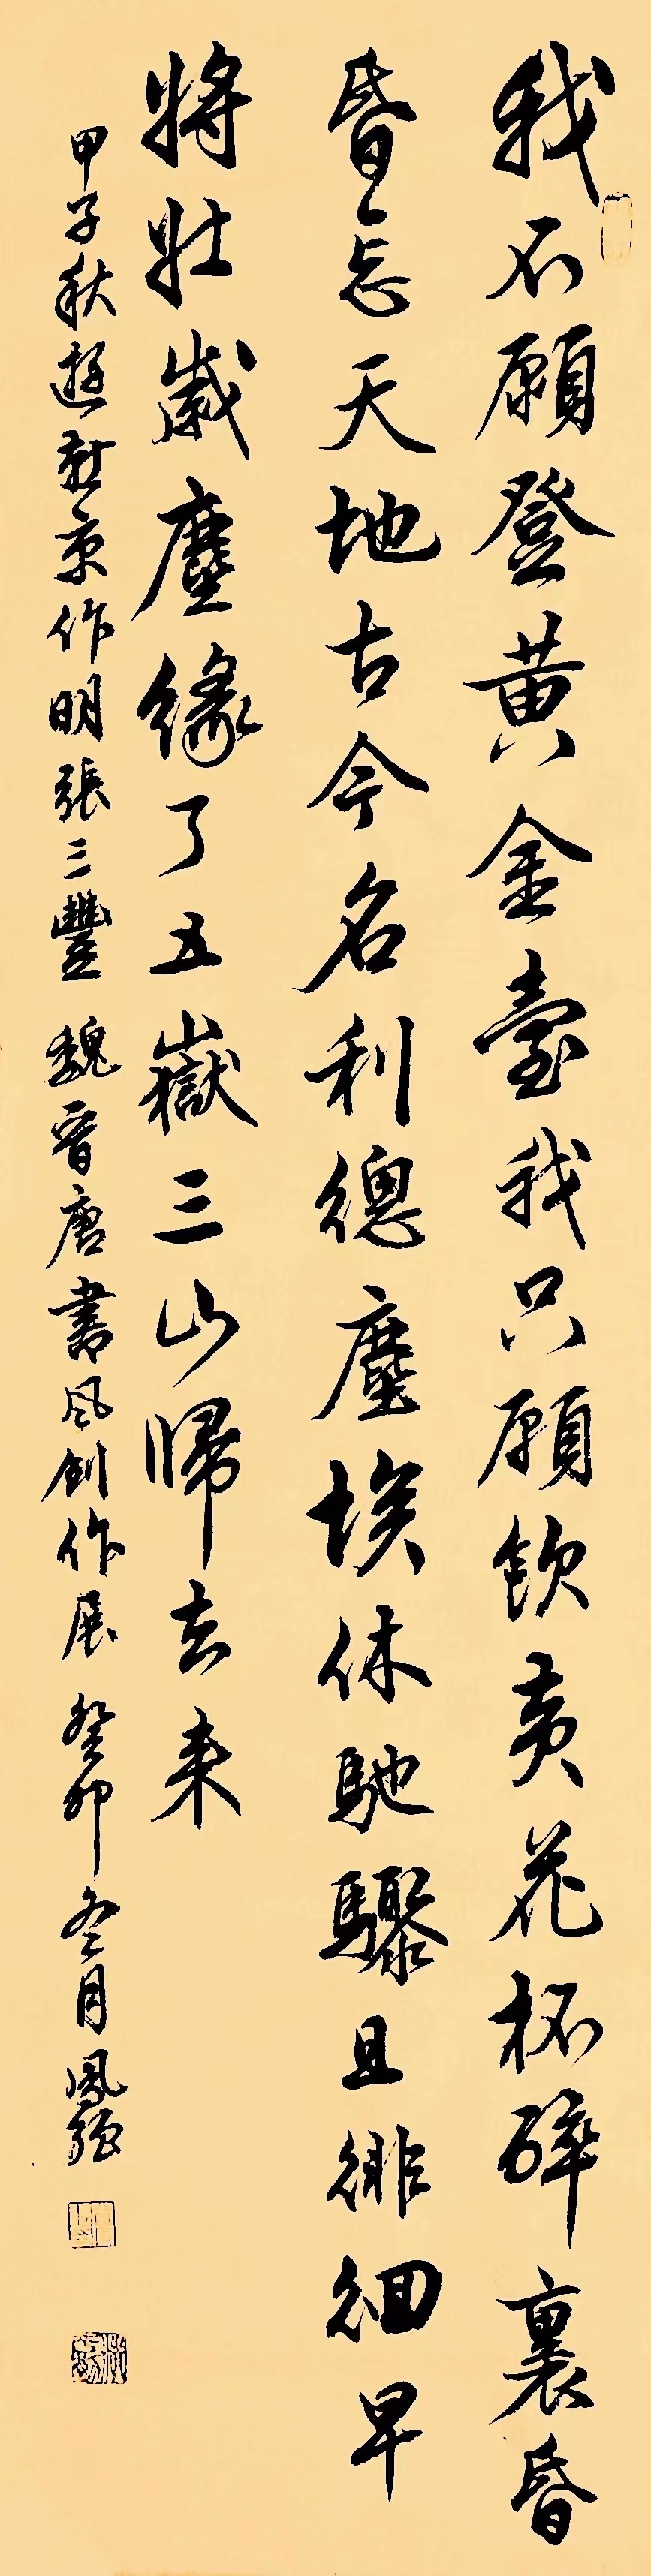 我不願登黄金臺我只願飲黄花杯醉裏昏
昏忘天地古今名利總塵埃休馳驟且徘徊早
將壯歲塵緣了五嶽三山歸去来
甲子秋遊燕京作明張三豐 魏晋唐書風創作展 癸卯冬月鳳强